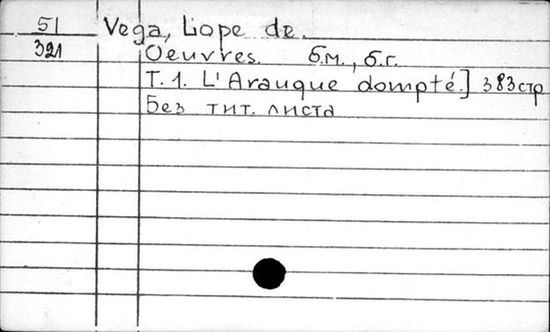 51 Vega, Lope de.
321 Oeuvres. б.м., б.г.
Т. 1. L'Arauque dompté.] 383 стр
Без тит. листа